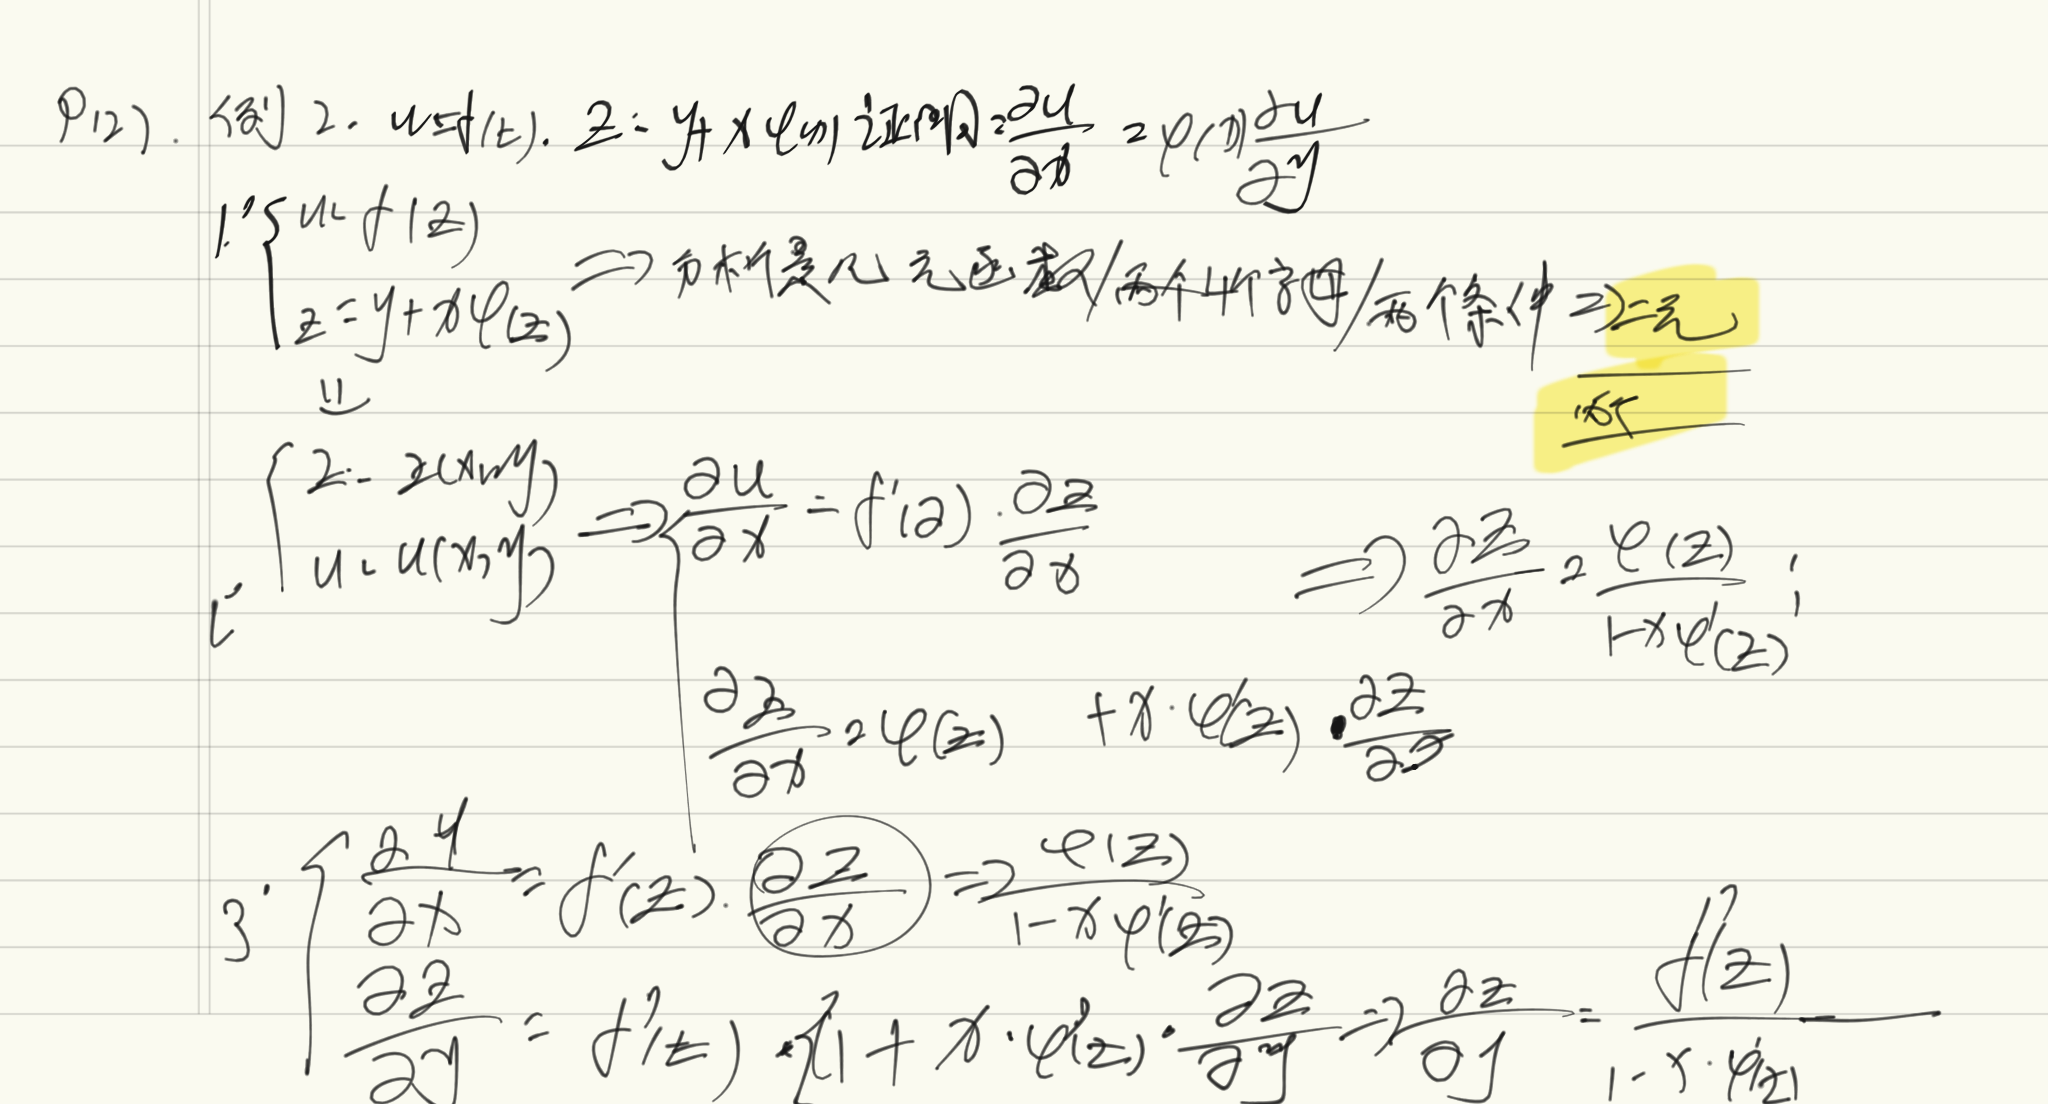 P127. 例2. u=f(z). z=y+xφ(z) 证明: ∂u/∂x = φ(z) ∂u/∂y
1° { u=f(z)
z=y+xφ(z) ⇒ 分析是几元函数/两个4个字母/两个条件 ⇒ 二元
{ z=z(x,y)
u=u(x,y) ⇒ { ∂u/∂x = f'(z)·∂z/∂x ⇒ ∂z/∂x = φ(z)/(1-xφ'(z));
∂z/∂x = φ(z) + x·φ'(z)·∂z/∂x
3° { ∂u/∂x = f'(z)·∂z/∂x ⇒ φ(z)/(1-xφ'(z))
∂z/∂y = f'(z)·{1+x·φ'(z)·∂z/∂y ⇒ ∂z/∂y = f'(z)/(1-x·φ'(z))